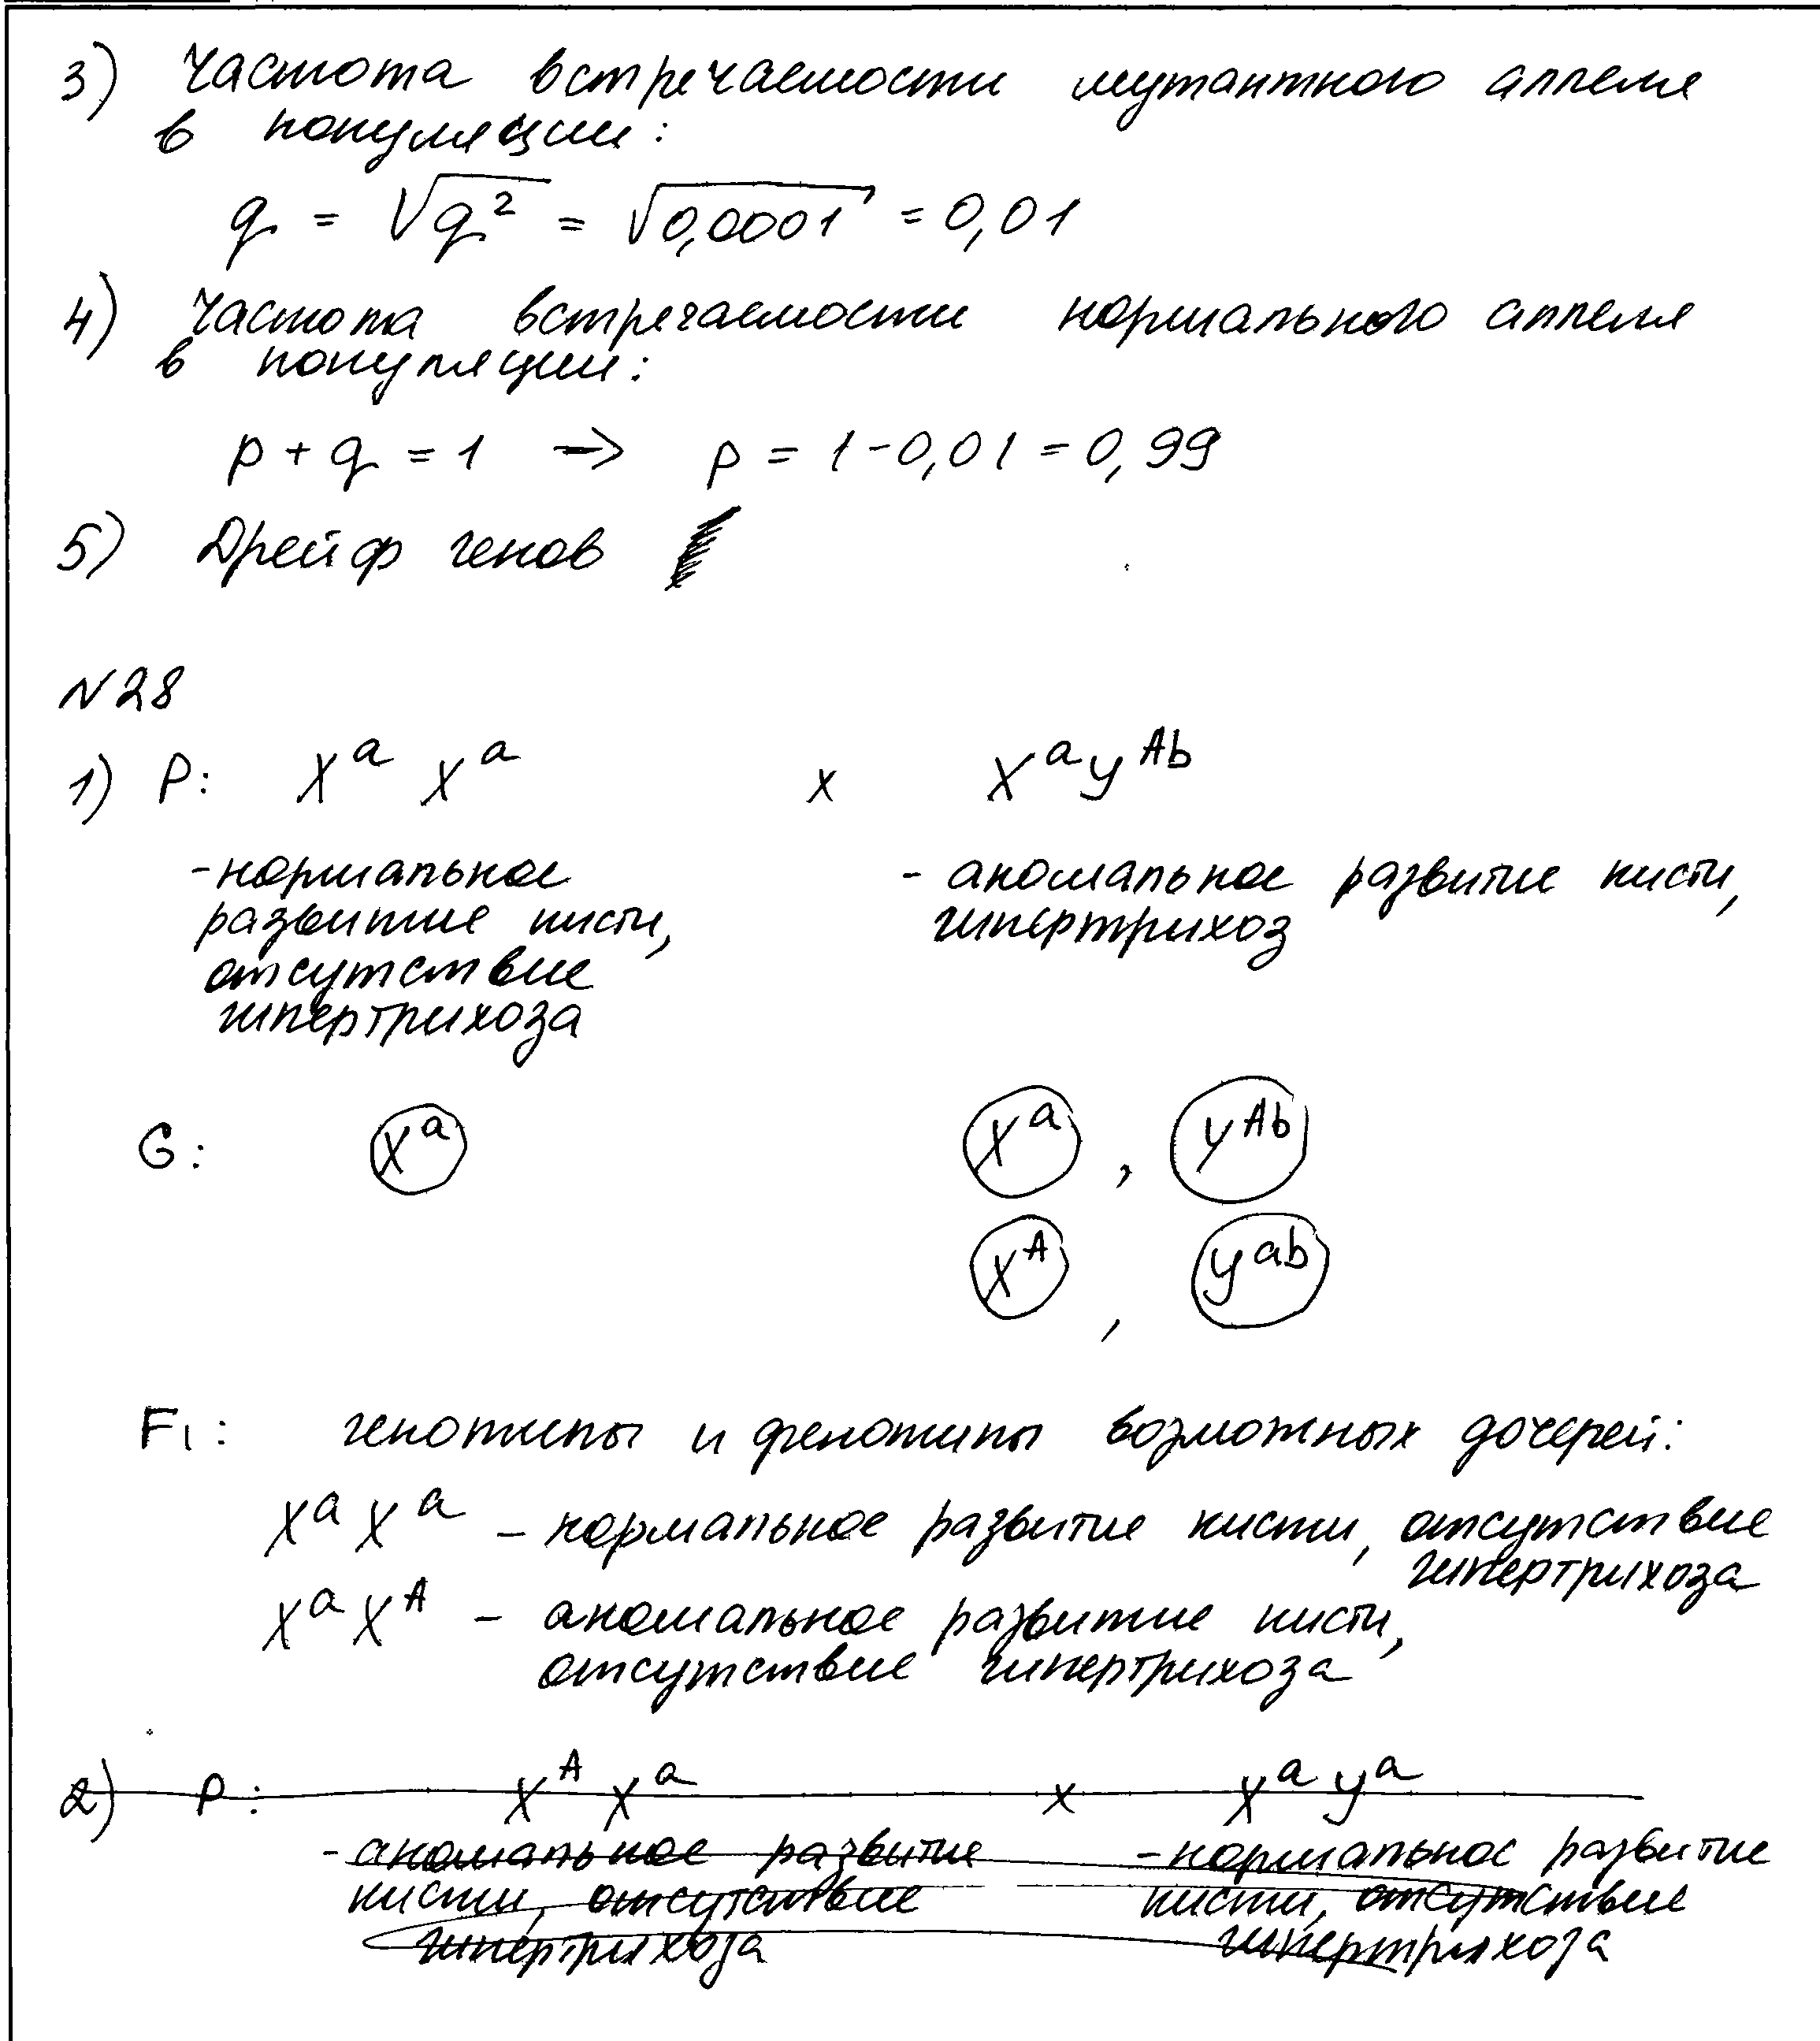 3) Частота встречаемости мутантного аллеля
в популяции:
q = √q² = √0,0001 = 0,01
4) Частота встречаемости нормального аллеля
в популяции:
p + q = 1 → p = 1 - 0,01 = 0,99
5) Дрейф генов
N28
1) P: Xᵃ Xᵃ x XᵃYᴬᵇ
- нормальное - аномальное развитие кисти,
развитие кисти, гипертрихоз
отсутствие
гипертрихоза
G: Xᵃ Xᵃ , Yᴬᵇ
Xᴬ , Yᵃᵇ
F₁: генотипы и фенотипы возможных дочерей:
XᵃXᵃ - нормальное развитие кисти, отсутствие
гипертрихоза
XᵃXᴬ - аномальное развитие кисти,
отсутствие гипертрихоза
2) P: Xᴬ Xᵃ x XᵃYᵃ
- аномальное развитие - нормальное развитие
кисти, отсутствие кисти, отсутствие
гипертрихоза гипертрихоза